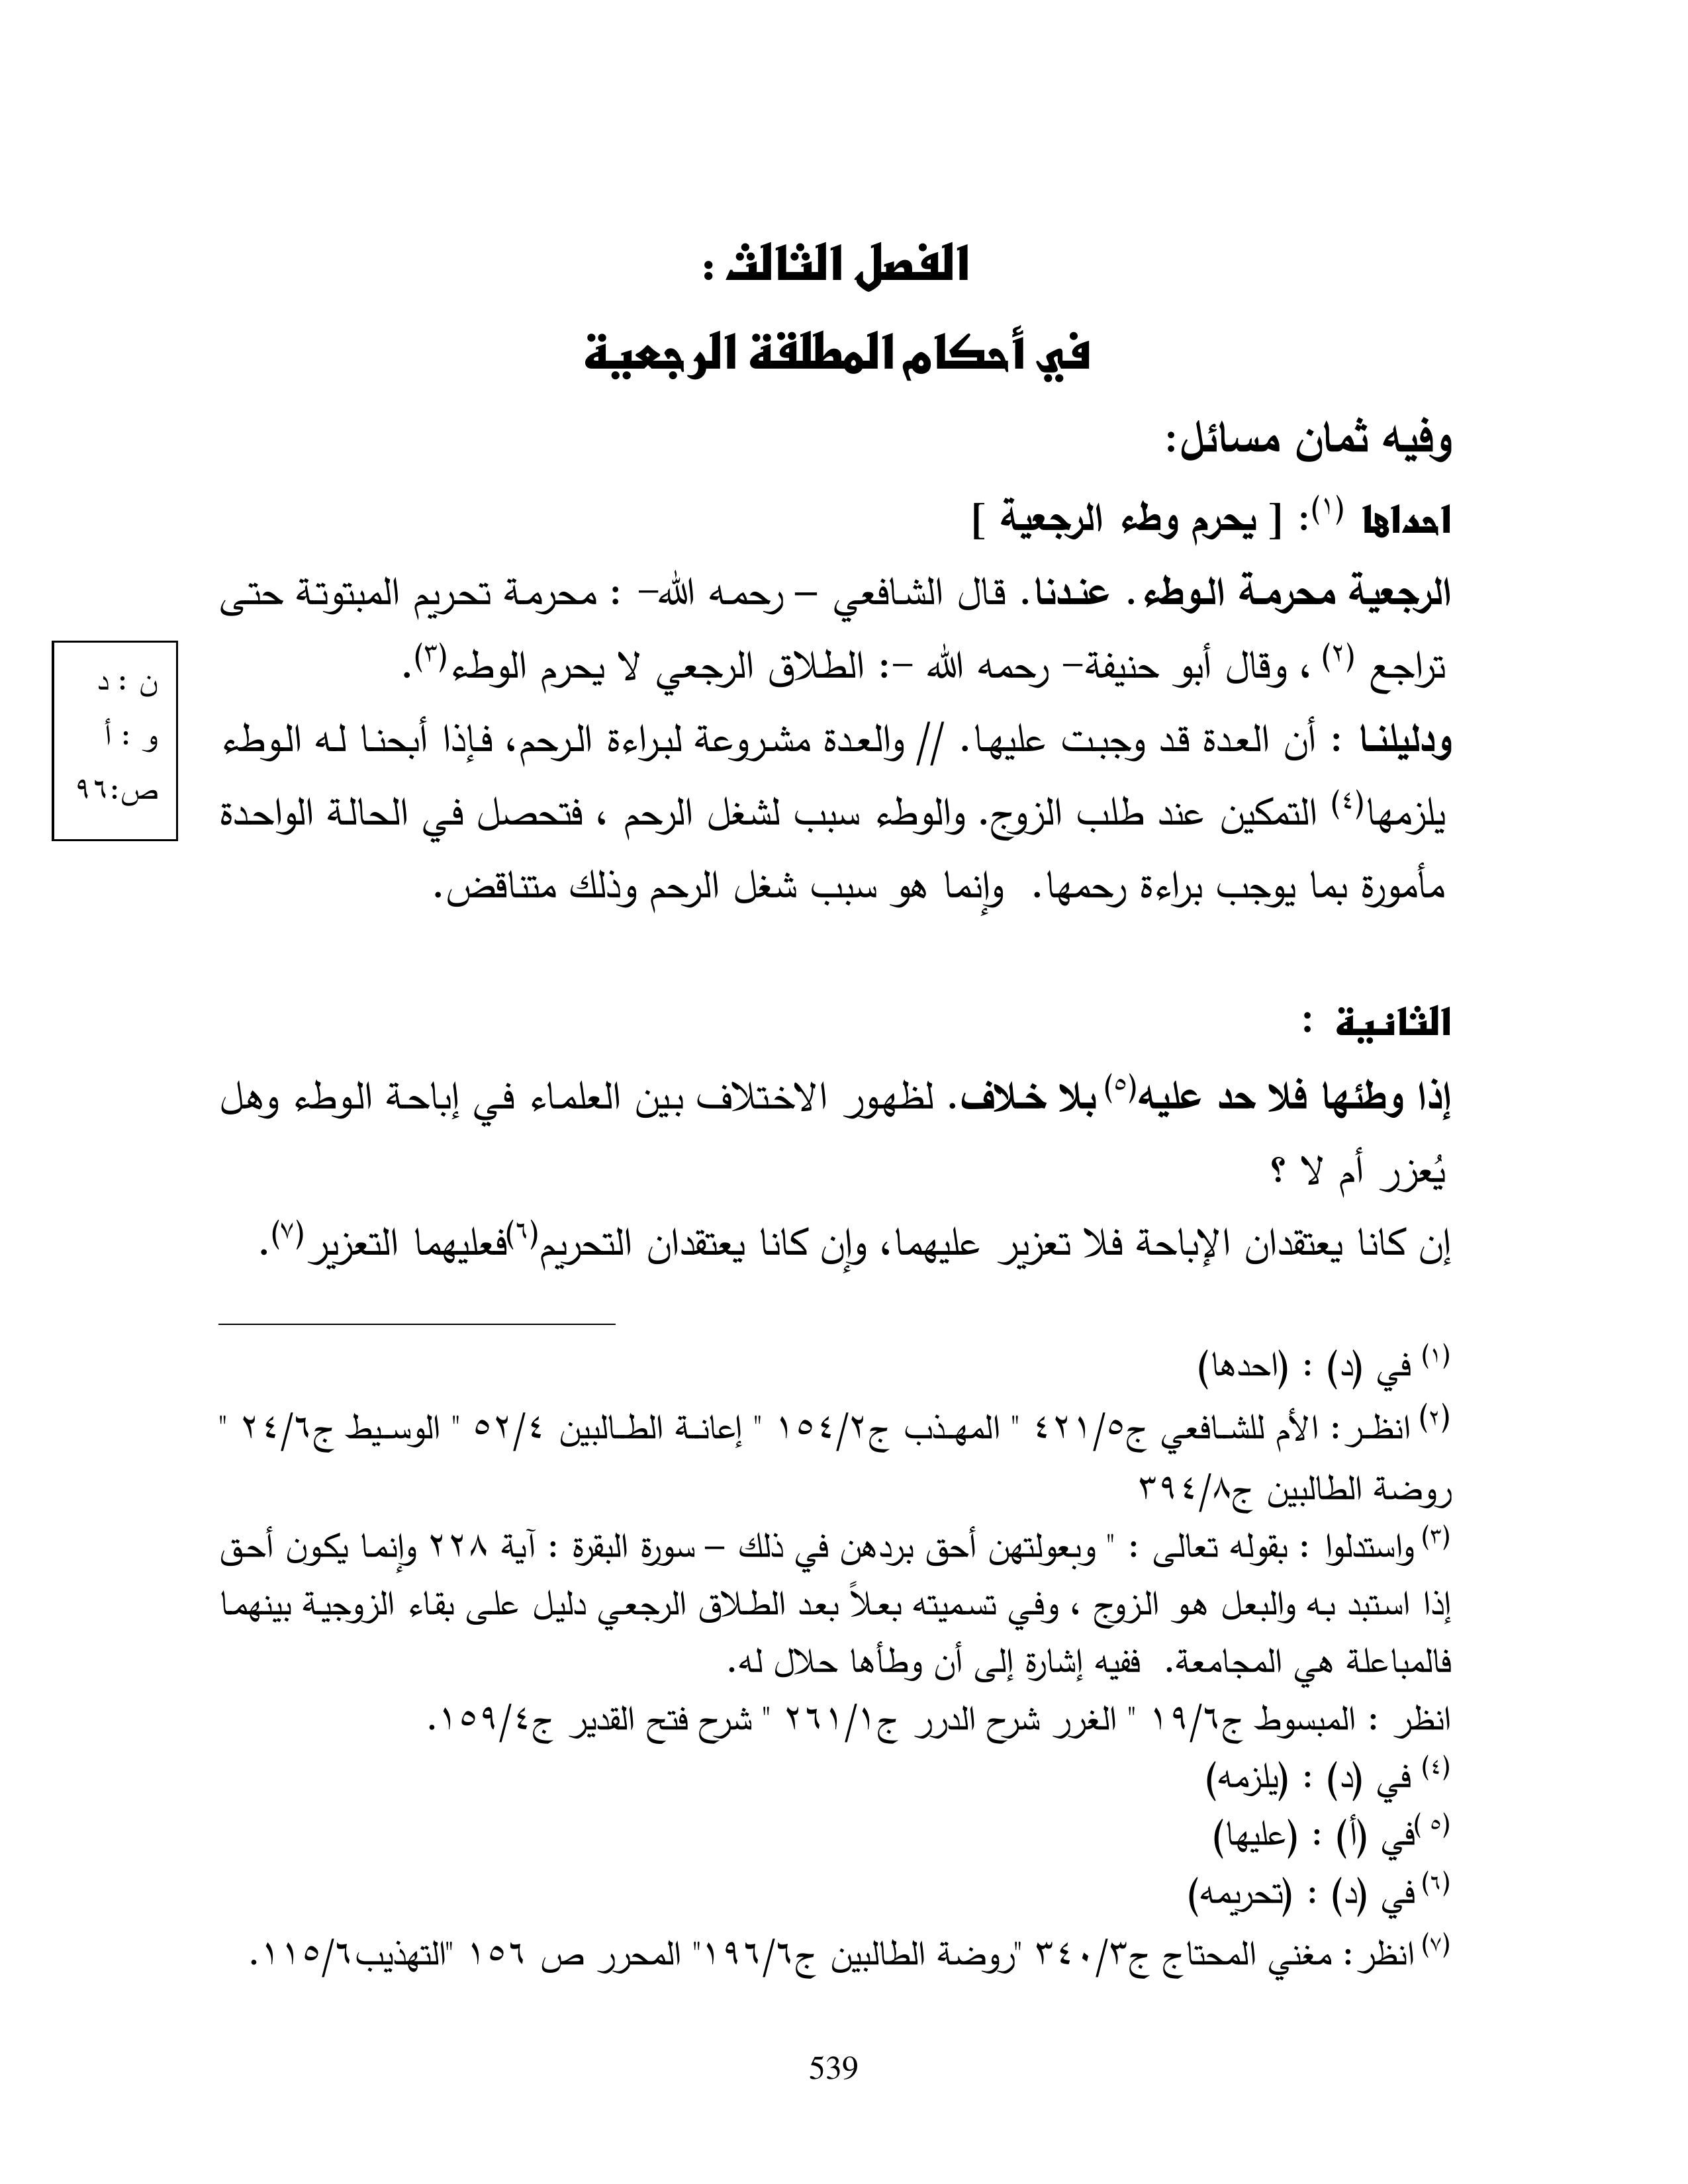 الفصل الثالث :
في أحكام المطلقة الرجعية
وفيه ثمان مسائل:
احداها (١): [ يحرم وطء الرجعية ]
الرجعية محرمة الوطء. عندنا. قال الشافعي – رحمه الله– : محرمة تحريم المبتوتة حتى
تراجع (٢) ، وقال أبو حنيفة– رحمه الله –: الطلاق الرجعي لا يحرم الوطء(٣).
ودليلنا : أن العدة قد وجبت عليها. // والعدة مشروعة لبراءة الرحم، فإذا أبحنا له الوطء
يلزمها(٤) التمكين عند طلب الزوج. والوطء سبب لشغل الرحم ، فتحصل في الحالة الواحدة
مأمورة بما يوجب براءة رحمها. وإنما هو سبب شغل الرحم وذلك متناقض.
ن : د
و : أ
ص:٩٦
الثانية :
إذا وطئها فلا حد عليه(٥) بلا خلاف. لظهور الاختلاف بين العلماء في إباحة الوطء وهل
يُعزر أم لا ؟
إن كانا يعتقدان الإباحة فلا تعزير عليهما، وإن كانا يعتقدان التحريم(٦)فعليهما التعزير(٧).
(١) في (د) : (احدها)
(٢) انظر: الأم للشافعي ج٤٢١/٥ " المهذب ج١٥٤/٢ " إعانة الطالبين ٥٢/٤ " الوسيط ج٢٤/٦ "
روضة الطالبين ج٣٩٤/٨
(٣) واستدلوا : بقوله تعالى : " وبعولتهن أحق بردهن في ذلك – سورة البقرة : آية ٢٢٨ وإنما يكون أحق
إذا استبد به والبعل هو الزوج ، وفي تسميته بعلاً بعد الطلاق الرجعي دليل على بقاء الزوجية بينهما
فالمباعلة هي المجامعة. ففيه إشارة إلى أن وطأها حلال له.
انظر : المبسوط ج١٩/٦ " الغرر شرح الدرر ج٢٦١/١ " شرح فتح القدير ج١٥٩/٤.
(٤) في (د) : (يلزمه)
(٥ )في (أ) : (عليها)
(٦) في (د) : (تحريمه)
(٧) انظر: مغني المحتاج ج٣٤٠/٣ "روضة الطالبين ج١٩٦/٦" المحرر ص ١٥٦ "التهذيب١١٥/٦.
539